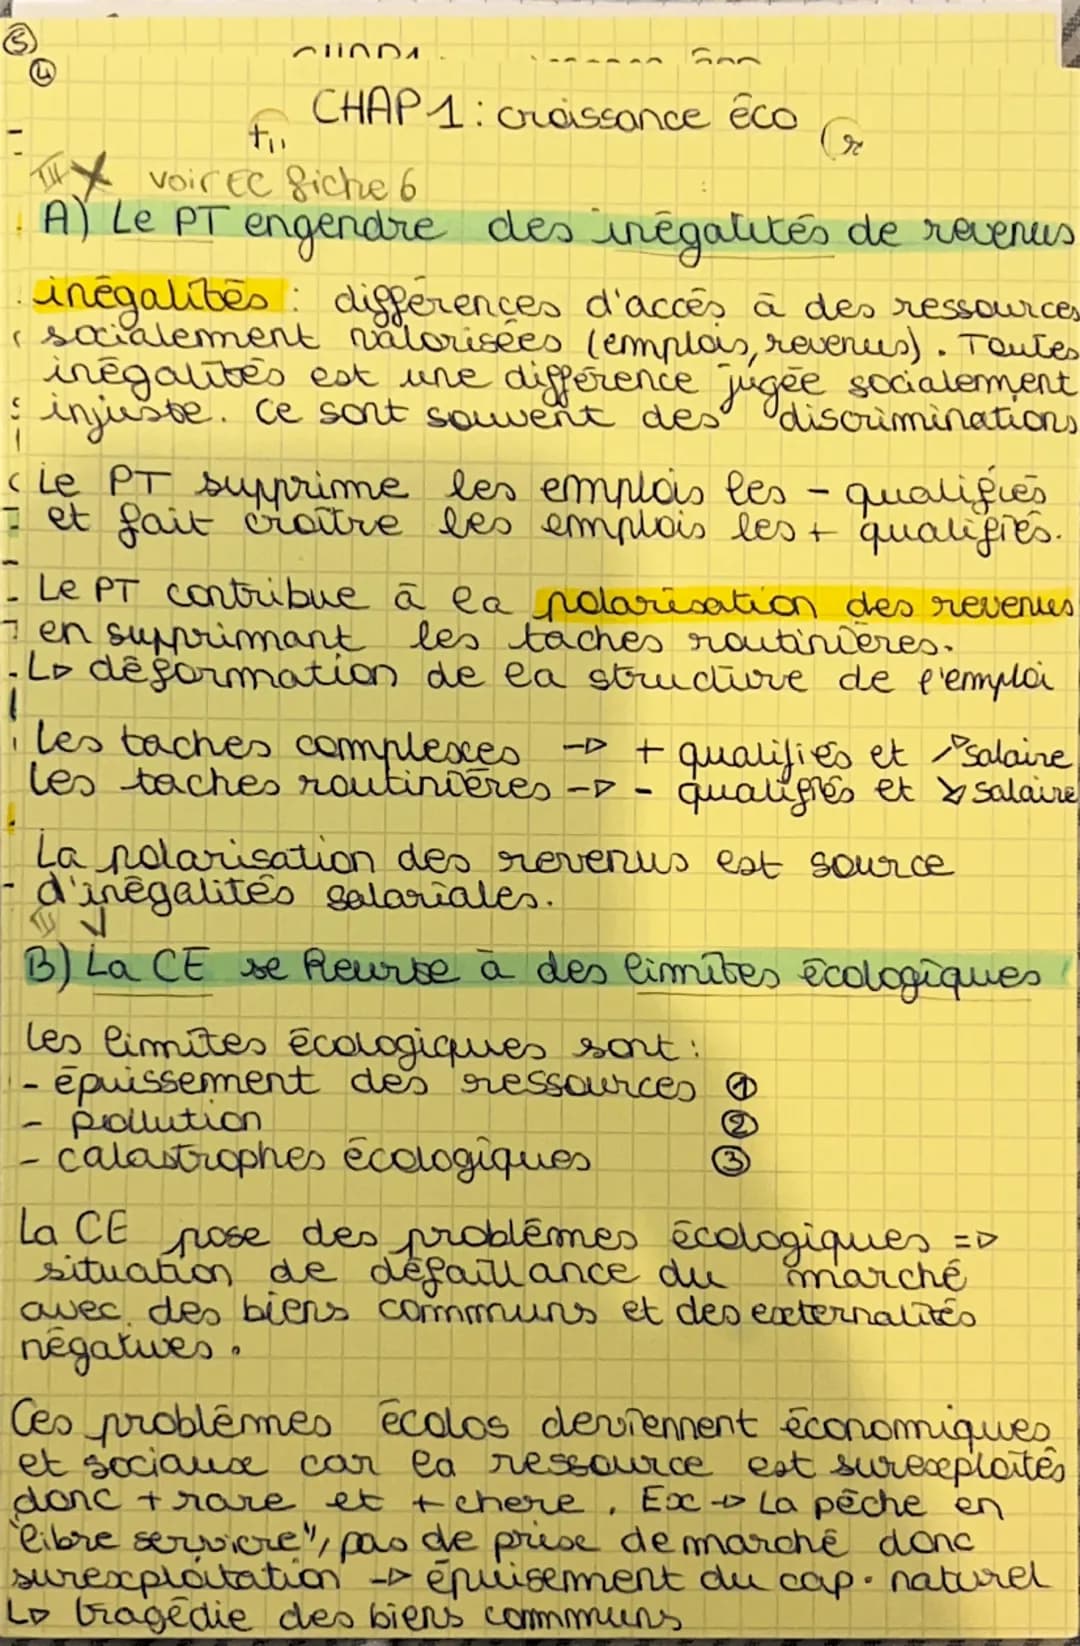 5
4
CHAP 1 : croissance éco
III X voir EC fiche 6
A) Le PT engendre des inégalités de revenus
inégalités : différences d'accés à des ressources
socialement valorisées (emplois, revenus). Toutes
inégalités est une différence jugée socialement
injuste. Ce sont souvent des discriminations
Le PT supprime les emplois les - qualifiés
et fait croître les emplois les + qualifiés.
Le PT contribue à la polarisation des revenus
en supprimant les taches routinières.
↳ déformation de la structure de l'emploi
Les taches complexes → + qualifiés et ↗ salaire
Les taches routinières → - qualifiés et ↘ salaire
La polarisation des revenus est source
d'inégalités salariales.
III ✓
B) La CE se heurte à des limites écologiques
Les limites écologiques sont :
- épuissement des ressources ①
- pollution ②
- catastrophes écologiques ③
La CE pose des problèmes écologiques =>
situation de défaillance du marché
avec des biens communs et des externalités
négatives.
Ces problèmes écolos deviennent économiques
et sociaux car la ressource est surexploités
donc + rare et + chere. Ex → La pêche en
"libre servicre", pas de prise de marché donc
surexploitation → épuisement du cap. naturel
↳ tragédie des biens commmuns